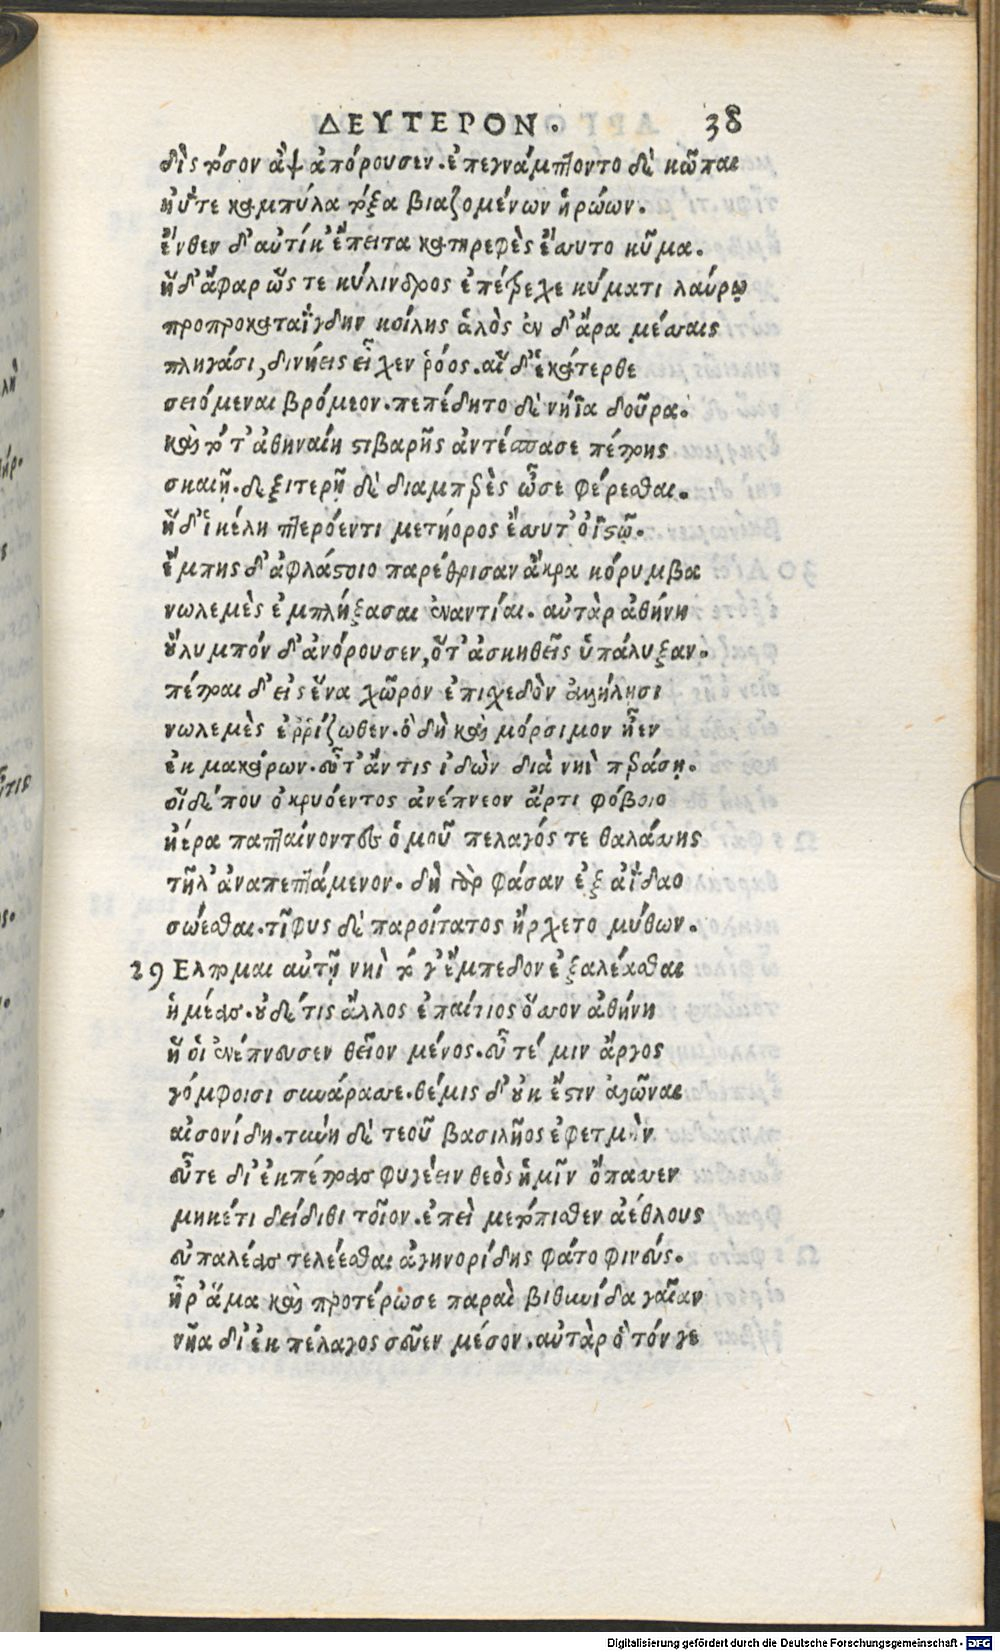 ΔΕΥΤΕΡΟΝ. 38
δὶς τόσον ἂψ ἀπόρουσεν. ἐπεγνάμπτοντο δὲ κῶπαι
ἠΰτε καμπύλα τόξα βιαζομένων ἡρώων.
ἔνθεν δ' αὐτίκ' ἔπειτα κατηρεφὲς ἔσσυτο κῦμα.
ἣ δ' ἄφαρ ὥς τε κύλινδρος ἐπέτρεχε κύματι λαύρῳ
προπροκαταΐγδην κοίλης ἁλὸς ἐν δ' ἄρα μέσσαις
πληγάσι, δινήεις εἶχεν ῥόος. αἳ δ' ἑκάτερθε
σειόμεναι βρόμεον. πεπέδητο δὲ νήϊα δοῦρα.
καὶ τότ' ἀθηναίη στιβαρῆς ἀντέσπασε πέτρης
σκαιῇ. δεξιτερῇ δὲ διαμπερὲς ὦσε φέρεσθαι.
ἣ δ' ἰκέλη πτερόεντι μετήορος ἔσσυτ' ὀϊστῷ.
ἔμπης δ' ἀφλάστοιο παρέθρισαν ἄκρα κόρυμβα
νωλεμὲς ἐμπλήξασαι ἐναντίαι. αὐτὰρ ἀθήνη
οὔλυμπόν δ' ἀνόρουσεν, ὅτ' ἀσκηθεῖς ὑπάλυξαν.
πέτραι δ' εἰς ἕνα χῶρον ἐπισχεδὸν ἀλλήλησι
νωλεμὲς ἐρρίζωθεν. ὃ δὴ καὶ μόρσιμον ἦεν
ἐκ μακάρων. εὖτ' ἄν τις ἰδὼν διὰ νηῒ περάσῃ.
οἳ δέ που ὀκρυόεντος ἀνέπνεον ἄρτι φόβοιο
ἠέρα παπταίνοντες ὁμοῦ πέλαγός τε θαλάσσης
τῆλ' ἀναπεπτάμενον. δὴ γὰρ φάσαν ἐξ ἀΐδαο
σώεσθαι. τῖφυς δὲ παροίτατος ἤρχετο μύθων.
29 Ελπομαι αὐτῇ νηῒ τό γ' ἔμπεδον ἐξαλέασθαι
ἡμέας. οὐδέ τις ἄλλος ἐπαίτιος ὅσσον ἀθήνη
ἥ οἱ ἐνέπνευσεν θεῖον μένος. εὖτέ μιν ἄργος
γόμφοισι συνάρασσε. θέμις δ' οὐκ ἔστιν ἁλῶναι
αἰσονίδη. τύνη δὲ τεοῦ βασιλῆος ἐφετμὴν
εὖτε δι' ἐκ πέτρας φυγέειν θεὸς ἡμῖν ὄπασσεν
μηκέτι δείδιθι τοῖον. ἐπεὶ μετόπισθεν ἀέθλους
εὐπαλέας τελέεσθαι ἀγηνορίδης φάτο φινεύς.
ἦ ῥ' ἅμα καὶ προτέρωσε παραὶ βιθυνίδα γαῖαν
νῆα δι' ἐκ πέλαγος σεῦεν μέσον. αὐτὰρ ὃ τόν γε